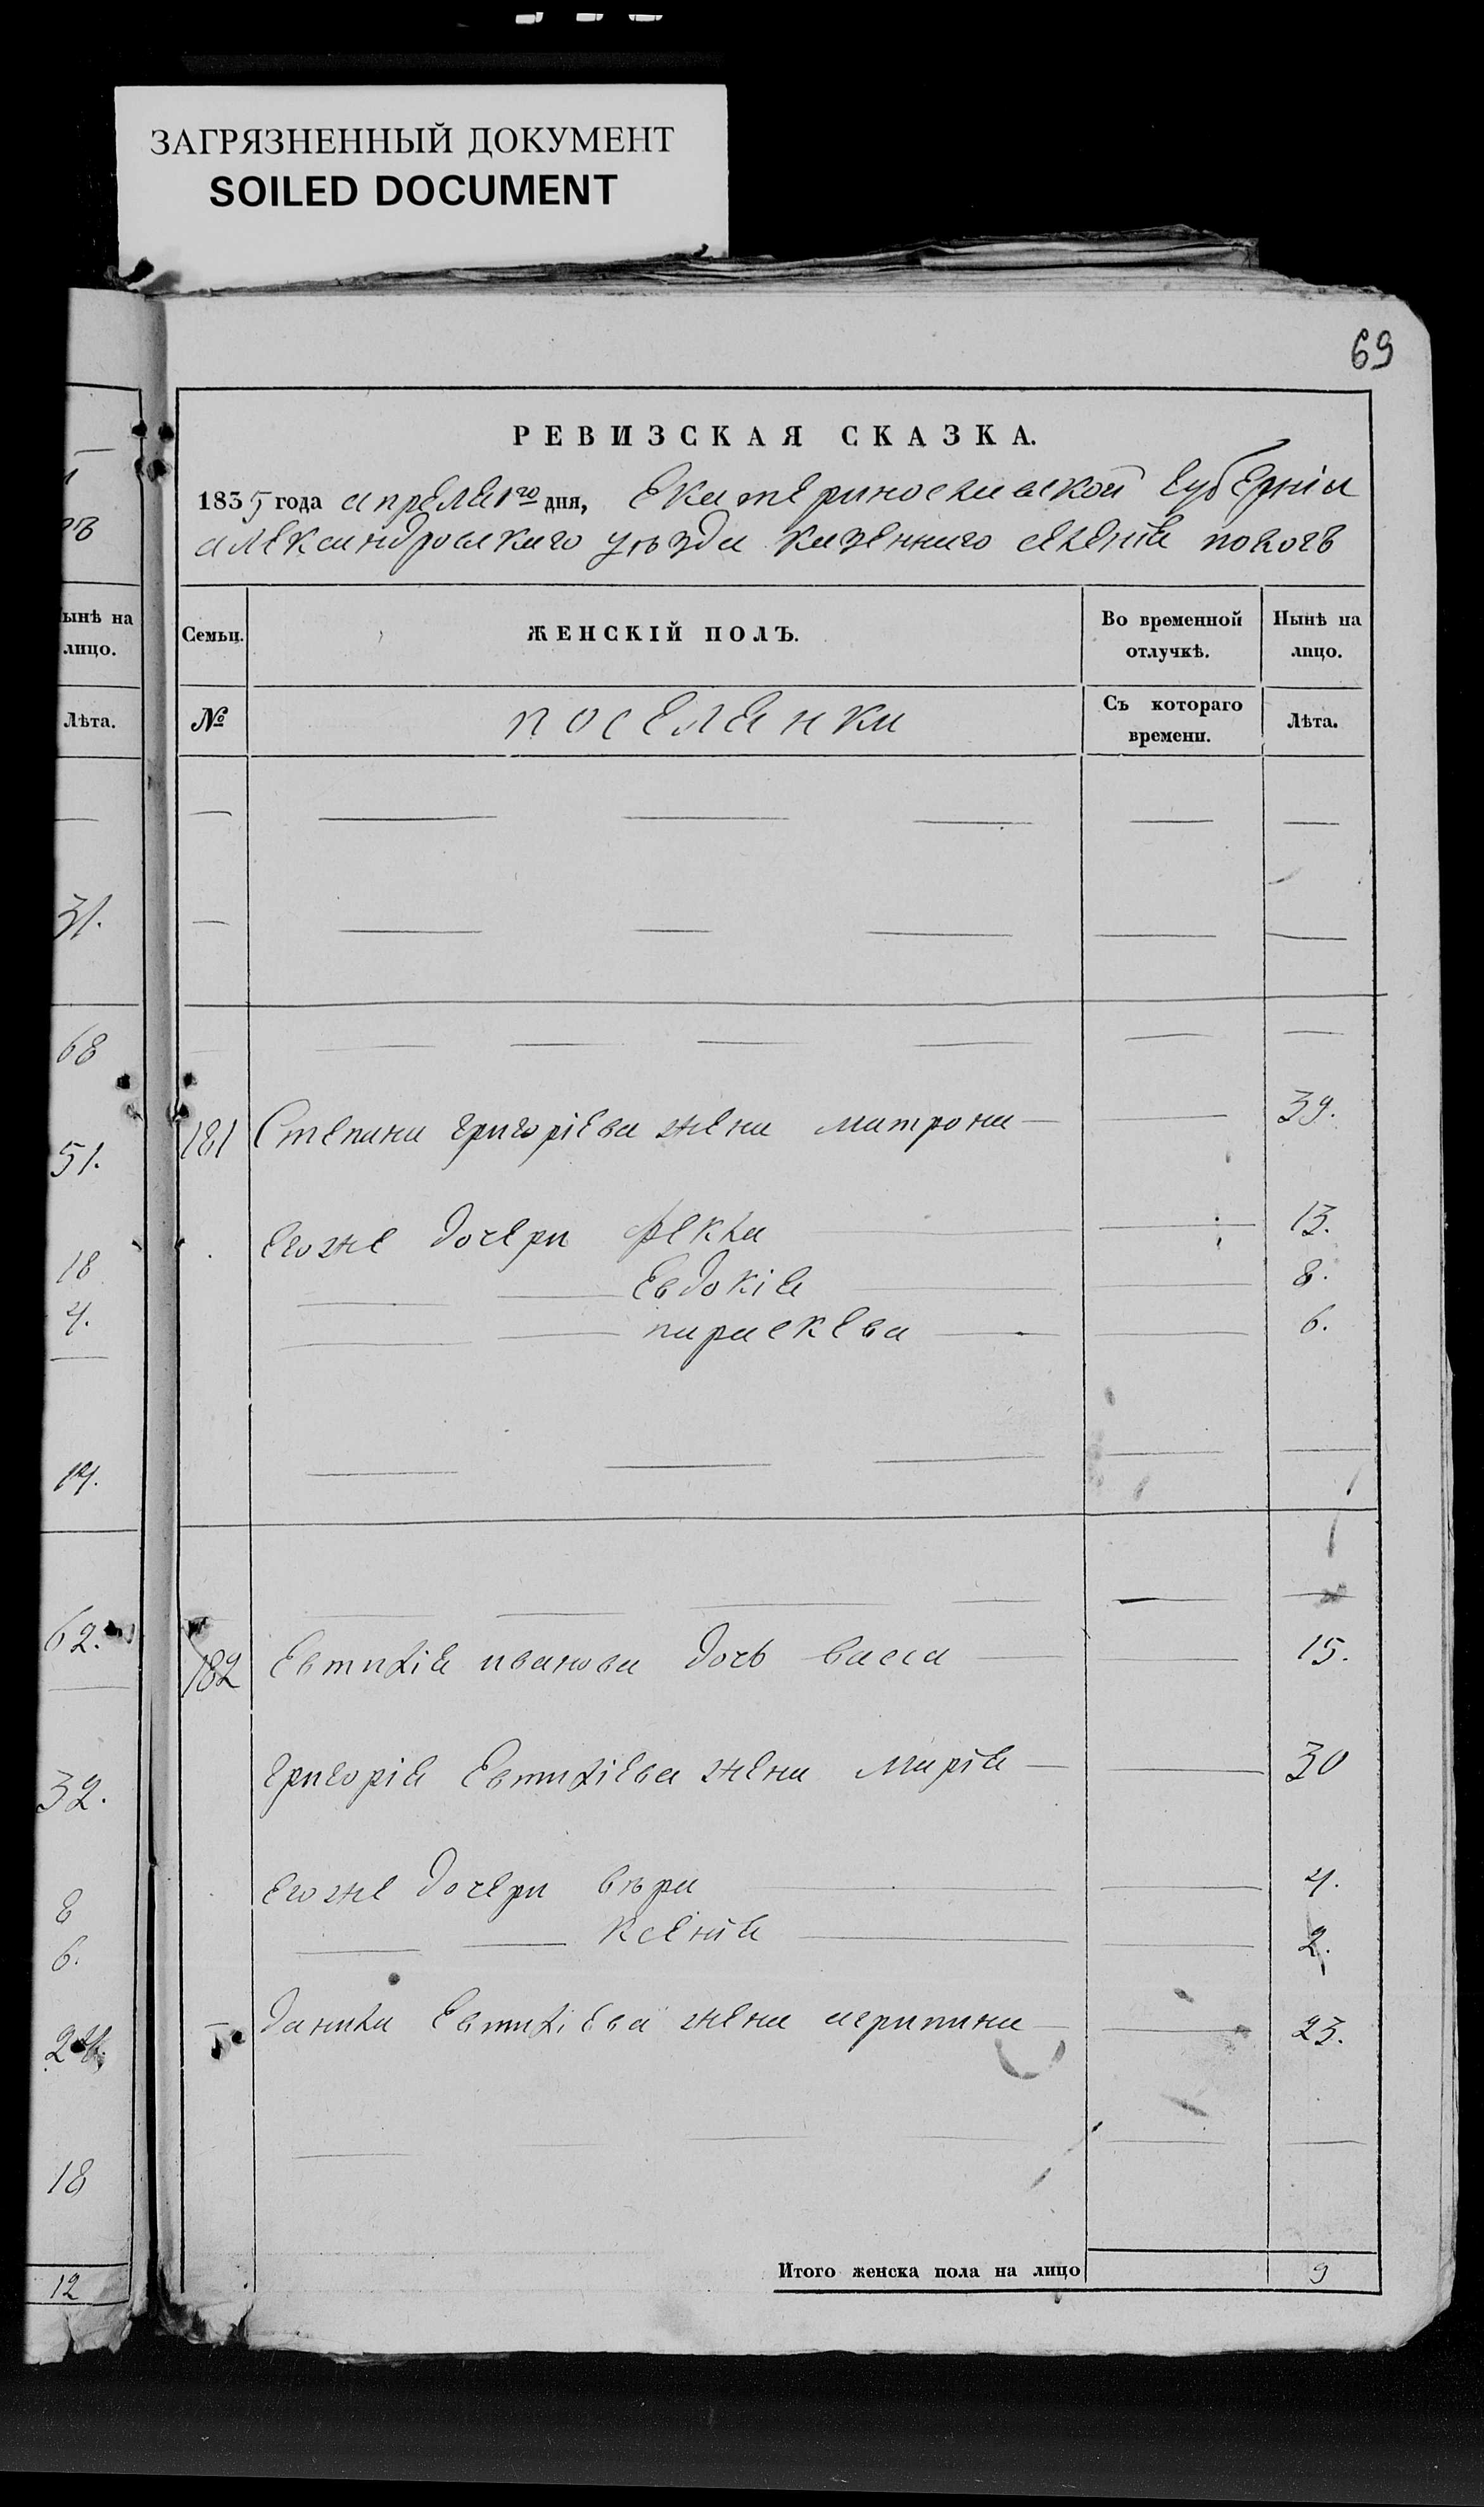 ЗАГРЯЗНЕННЫЙ ДОКУМЕНТ
SOILED DOCUMENT
69
РЕВИЗСКАЯ СКАЗКА.
1835 года апреля 1го дня, Екатеринославской губерніи
александровскаго уѣзда казеннаго селенія пологъ
ынѣ на
лицо.
Лѣта.
31.
68
51.
18
4.
14.
62.
32.
8
6.
18
12
Семьи. ЖЕНСКІЙ ПОЛЪ. Во временной отлучкѣ. Нынѣ на лицо.
№ поселянки Съ котораго времени. Лѣта.
181 Степана григоріева жена матрона 39.
егоже дочери фекла 13.
Евдокія 8.
параскева 6.
182 Евтихія иванова дочь васса 15.
григорія Евтихіева жена марія 30
егоже дочери вѣра 4.
ксенія 2.
данила Евтихіева жена агрипина 23.
Итого женска пола на лицо 9